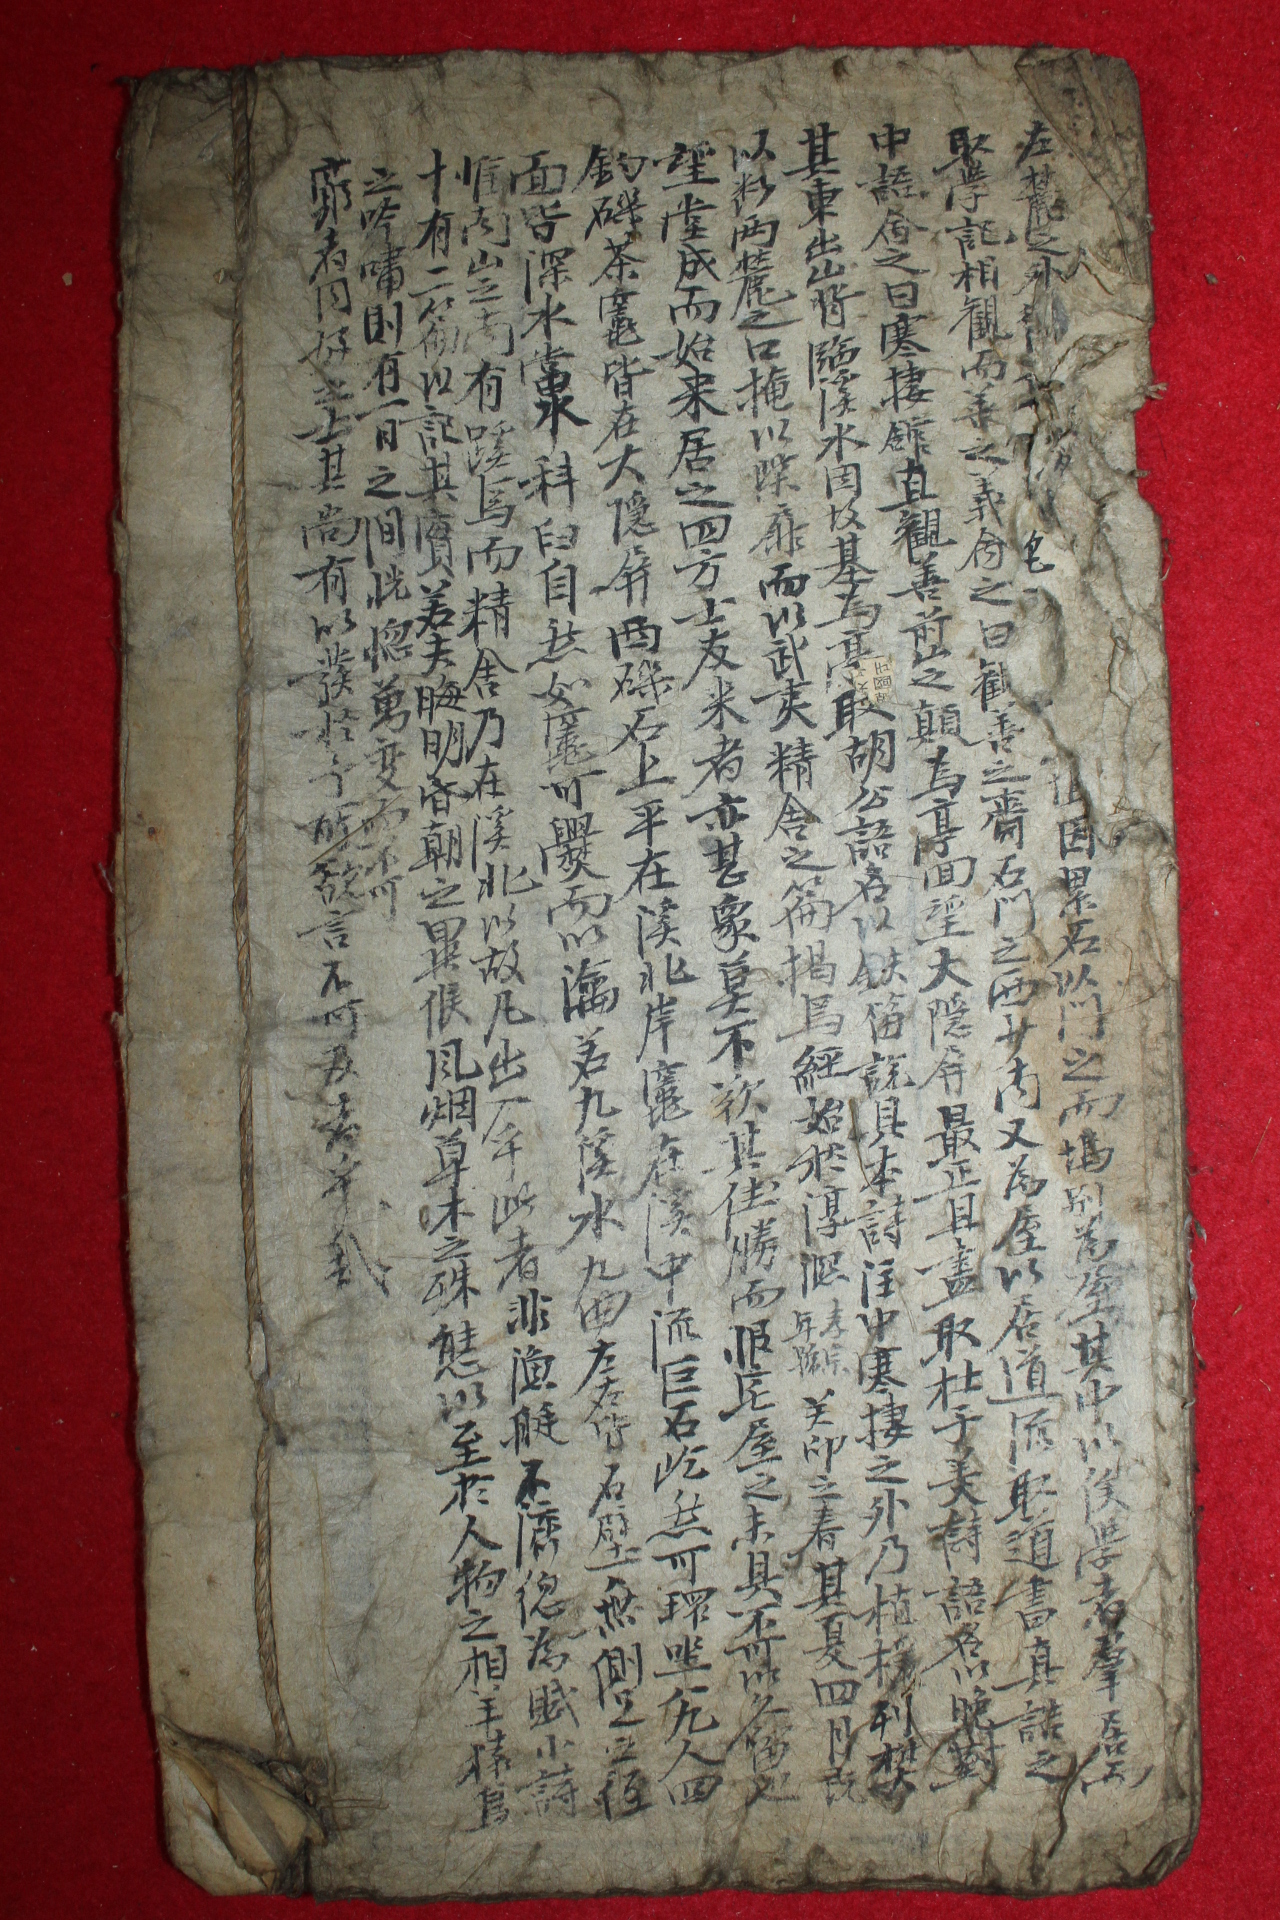 左麓之外
值因累石以門之而塢別爲屋其中以俟學者群居而
取學記相觀而善之義命之曰觀善之齋石門之西少南又爲屋以居道流取道書眞誥之
中語命之曰寒棲館直觀善前山之顚爲亭回望大隱屛最正且盡取杜子美詩語名以晩對
其東出山背臨溪水因故基爲亭取胡公語名以鉄笛說具本詩注中寒棲之外乃植援列樊
以斷兩麓之口掩以柴扉而以武夷精舍之篇揭焉經始於淳熙孝宗年號癸卯之春其夏四月旣
望堂成而始来居之四方士友来者亦甚衆莫不歎其佳勝而恨它屋之未具不可以久留也
釣磯茶竈皆在大隱屛西磯石上平在溪北岸竈在溪中流巨石屹然可環坐八九人四
面皆深水當泉科臼自然如竈可爨而以瀹茗九溪水九曲左右皆石壁無側足之徑
惟南山之南有蹊焉而精舍乃在溪北以故凡出入乎此者非漁艇不濟總爲賦小詩
十有二篇以記其實若夫晦明昏朝之異候風烟草木之殊態以至於人物之相羊猿鳥
之吟嘯則有一日之間恍惚萬變而不可
窮者同好之士其尙有以發於予所欲言而不可及者乎哉